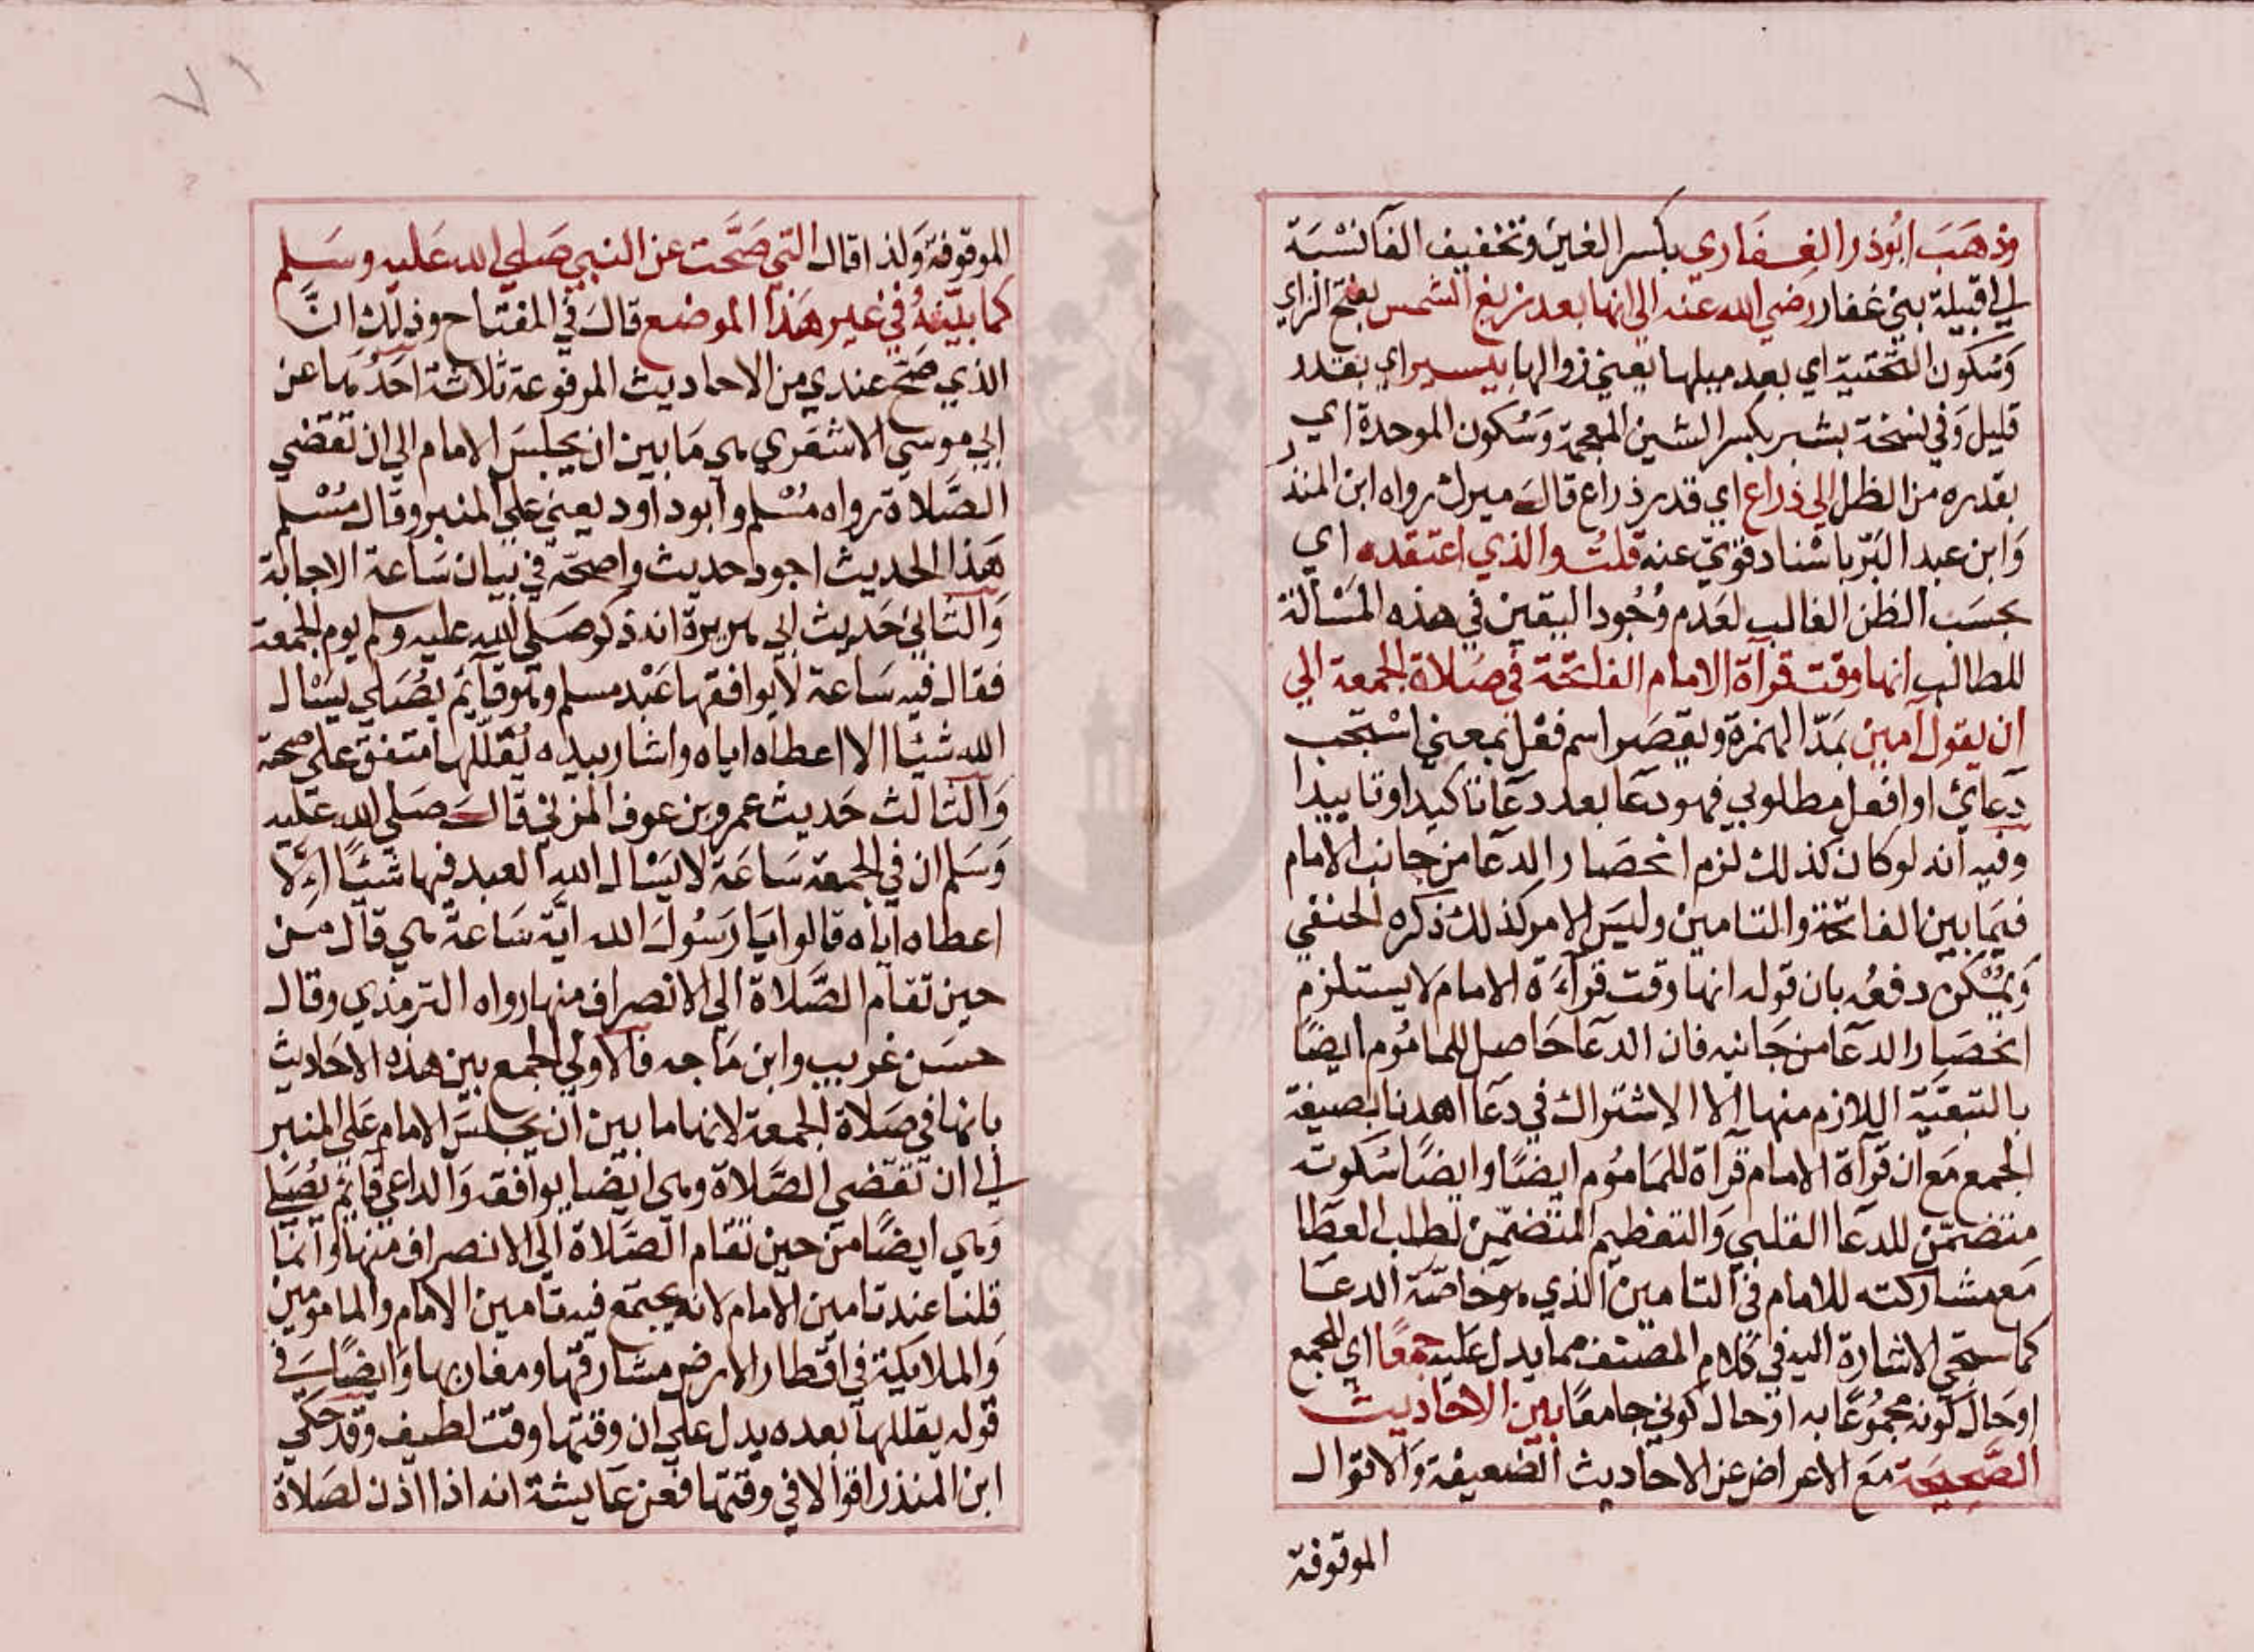 وذهَبَ ابُوذر الغِفَاري بكسر الغين وتخفيف الفآ نسْبَة
الي قبيلة بني غفار رضي الله عنه الي انها بعد زيغ الشمس بفتح الزاي
وَسُكون التحتية اي بعد ميلها يعني زوالها بيسير اي بقدر
قليل وَفي نسخة بشبر بكسر الشين المعجمة وَسُكون الموحدة اي
بقدره من الظل الي ذراع اي قدر ذراع قالَ ميرك رواه ابن المنذر
وَابن عبد البَرّ باسْناد قوّي عنه قلتُ والذي اعتقده اي
بحسَب الظن الغالب لعَدم وُجُود اليقين في هذه المَسْالة
للمطالب انها وقت قرآة الامام الفاتحَة في صَلاة الجمعة الي
ان يقول آمين بَمدّ الهمزة ويقصَر اسم فعْل بمعني اسْتجب
دعائ او افعل مطلوبي فهو دعَا بعد دعَا تاكيدا وتاييدا
وفيه انه لو كان كذلك لزم انحصَار الدعَا من جانب الامام
فيمَا بين الفاتحة والتامين وليسَ الامر كذلك ذكره الحنفي
وَيمْكن دفعُه بان قوله انها وقت قرآءَة الامام لا يستلزم
انحصَار الدعَا من جَانبه فان الدعَا حَاصل للمامُوم ايضًا
بالتبعَّية اللازم منها الا الاشتراك في دعَا اهدنا بصيغة
الجمع مَع ان قرآة الامام قرآة للمَامُوم ايضًا وايضًا سُكوته
متضمّن للدعَا القلبي وَالتعظيم المتضمّن لطلب العَطَا
مَع مشاركته للامام في التامين الذي هوَ خاصّة الدعَا
كما سيجَي الاشارة اليه في كلام المصنف مما يدل عَليه جمعًا اي للجمع
اوحَال كونه مجمُوعًا به او حَال كوني جامعًا بَين الاحاديث
الصَّحِيحَة مَع الاعراض عن الاحَاديث الضعيفة وَالاقوال
الموقوفة
الموقوفة وَلذا قال التي صَحَّت عن النبي صَلي الله عَليه وسَلم
كما بيّنتهُ في غير هَذا الموضع قالَ في المفتاح وذلك انَّ
الذي صَحّ عندي من الاحاديث المرفوعة ثلاثة احَدُهَما عن
ابي موسي الاشعَري هي مَا بين ان يجلسَ الامام الي ان تقضي
الصَّلاة رواه مُسْلم وابو داود يعني علي المنبر وقال مُسْلم
هَذا الحديث اجود حديث واصحّه في بَيان سَاعة الاجابة
وَالثاني حَديث ابي هريرة انه ذكر صَلي الله عليه وسلم يوم الجمعة
فقال فيه سَاعة لا يوافقها عَبْد مسلم وهو قآئم يصَلي يسْال
الله شيًا الا اعطاه اياه واشار بيده يُقَللهَا متفق علي صحّته
وَالثالث حَديث عمرو بن عوف المزني قالَ صَلي الله عَليه
وَسَلم ان في الجمعة سَاعَة لا يَسْال الله العبد فيها شيْاً الا
اعطاه اياه قالوا يا رَسُولَ الله ايّة سَاعة هي قال من
حين تقام الصَّلاة الي الانصراف منها رواه الترمذي وقال
حسَن غريب وابن مَاجه فالاولي الجمع بين هذه الاحَاديث
بانها في صَلاة الجمعة لانها ما بين ان يجلسَ الامام عَلي المنبر
الي ان تقضي الصَّلاة وهي ايضا يوافقه وَالداعي قآئم يُصَلي
وَهي ايضًا من حين تقام الصَّلاة الي الانصراف منها وانما
قلنا عند تامين الامام لانه يجتمع فيه تامين الامام والمامومين
وَالملائكة في اقطار الارض مشارقها ومغاربها وَايضًا في
قوله يقللها بعده يدل علي ان وقتها وقت لطيف وقد حَكي
ابن المنذر اقوالا في وقتها فعَن عَايشة انه اذا اذن لصَلاة